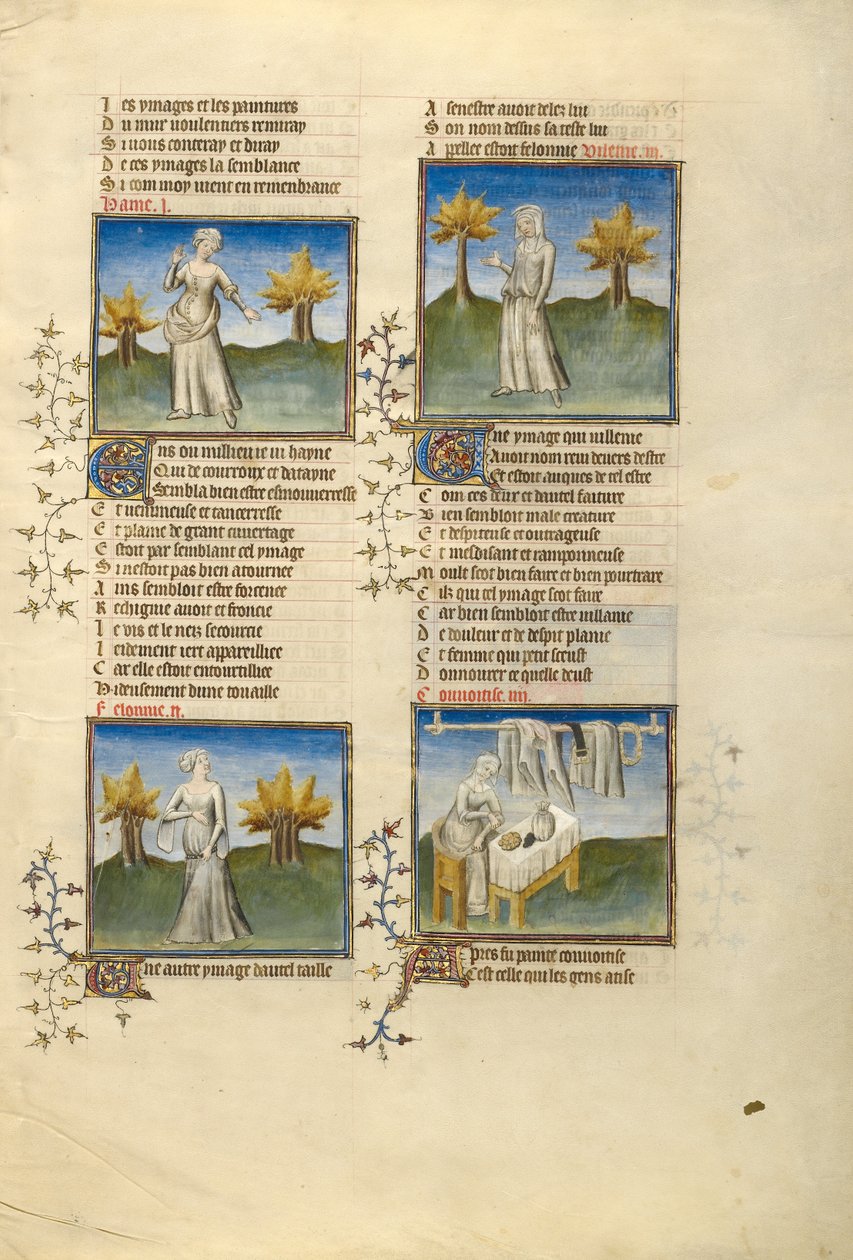 Les ymages et les paintures
Du mur voulentiers remiray
Si vous conteray et diray
De ces ymages la semblance
Si com moy vient en remenbrance
Hame. j.
Ens ou millieu ie vi hayne
Qui de courroux et datayne
Sembla bien estre esmouverresse
Et venimeuse et tancerresse
Et plaine de grant cuvertage
Estoit par semblant cel ymage
Si nestoit pas bien atournee
Ains sembloit estre forcenee
Rechignie avoit et froncie
Le vis et le nez secourcie
Leidement iert appareilliee
Car elle estoit entortilliee
Hideusement dune touaille
Felonnie. ij.
Une autre ymage dautel taille
A senestre avoit delez lui
Son nom dessus sa teste lui
Apellee estoit felonnie Vilenie. iij.
Une ymage qui villenie
Avoit nom revi devers destre
Et estoit auques de tel estre
Com ces deux et dautel faiture
Bien sembloit male creature
Et despiteuse et outrageuse
Et mesdisant et ramponneuse
Moult scot bien faire et bien pourtraire
Cilz qui cel ymage scot faire
Car bien sembloit estre villanie
De douleur et de despit planie
Et femme qui petit sceust
Donnourer ce quelle deust
Couvoitise. iiij.
Apres fu painte couvoitise
Cest celle qui les gens atise